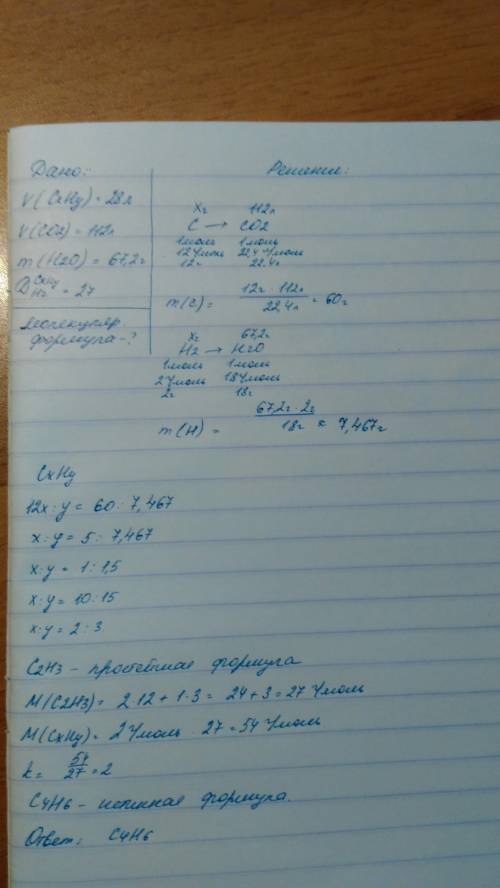 Дано:
V(CxHy) = 28л
V(CO2) = 112л
m(H2O) = 67,2г
D CxHy H2 = 27
молекуляр. формула - ?
Решение:
xг 112л
C → CO2
1моль 1моль
12г/моль 22,4л/моль
12г 22.4л
m(C) = 12г · 112л / 22.4л = 60г
xг 67,2г
H2 → H2O
1моль 1моль
2г/моль 18г/моль
2г 18г
m(H) = 67,2г · 2г / 18г ≈ 7,467г
CxHy
12x : y = 60 : 7,467
x : y = 5 : 7,467
x : y = 1 : 1,5
x : y = 10 : 15
x : y = 2 : 3
C2H3 - простейшая формула
M(C2H3) = 2·12 + 1·3 = 24+3 = 27г/моль
M(CxHy) = 2г/моль · 27 = 54г/моль
k = 54/27 = 2
C4H6 - истинная формула.
Ответ: C4H6